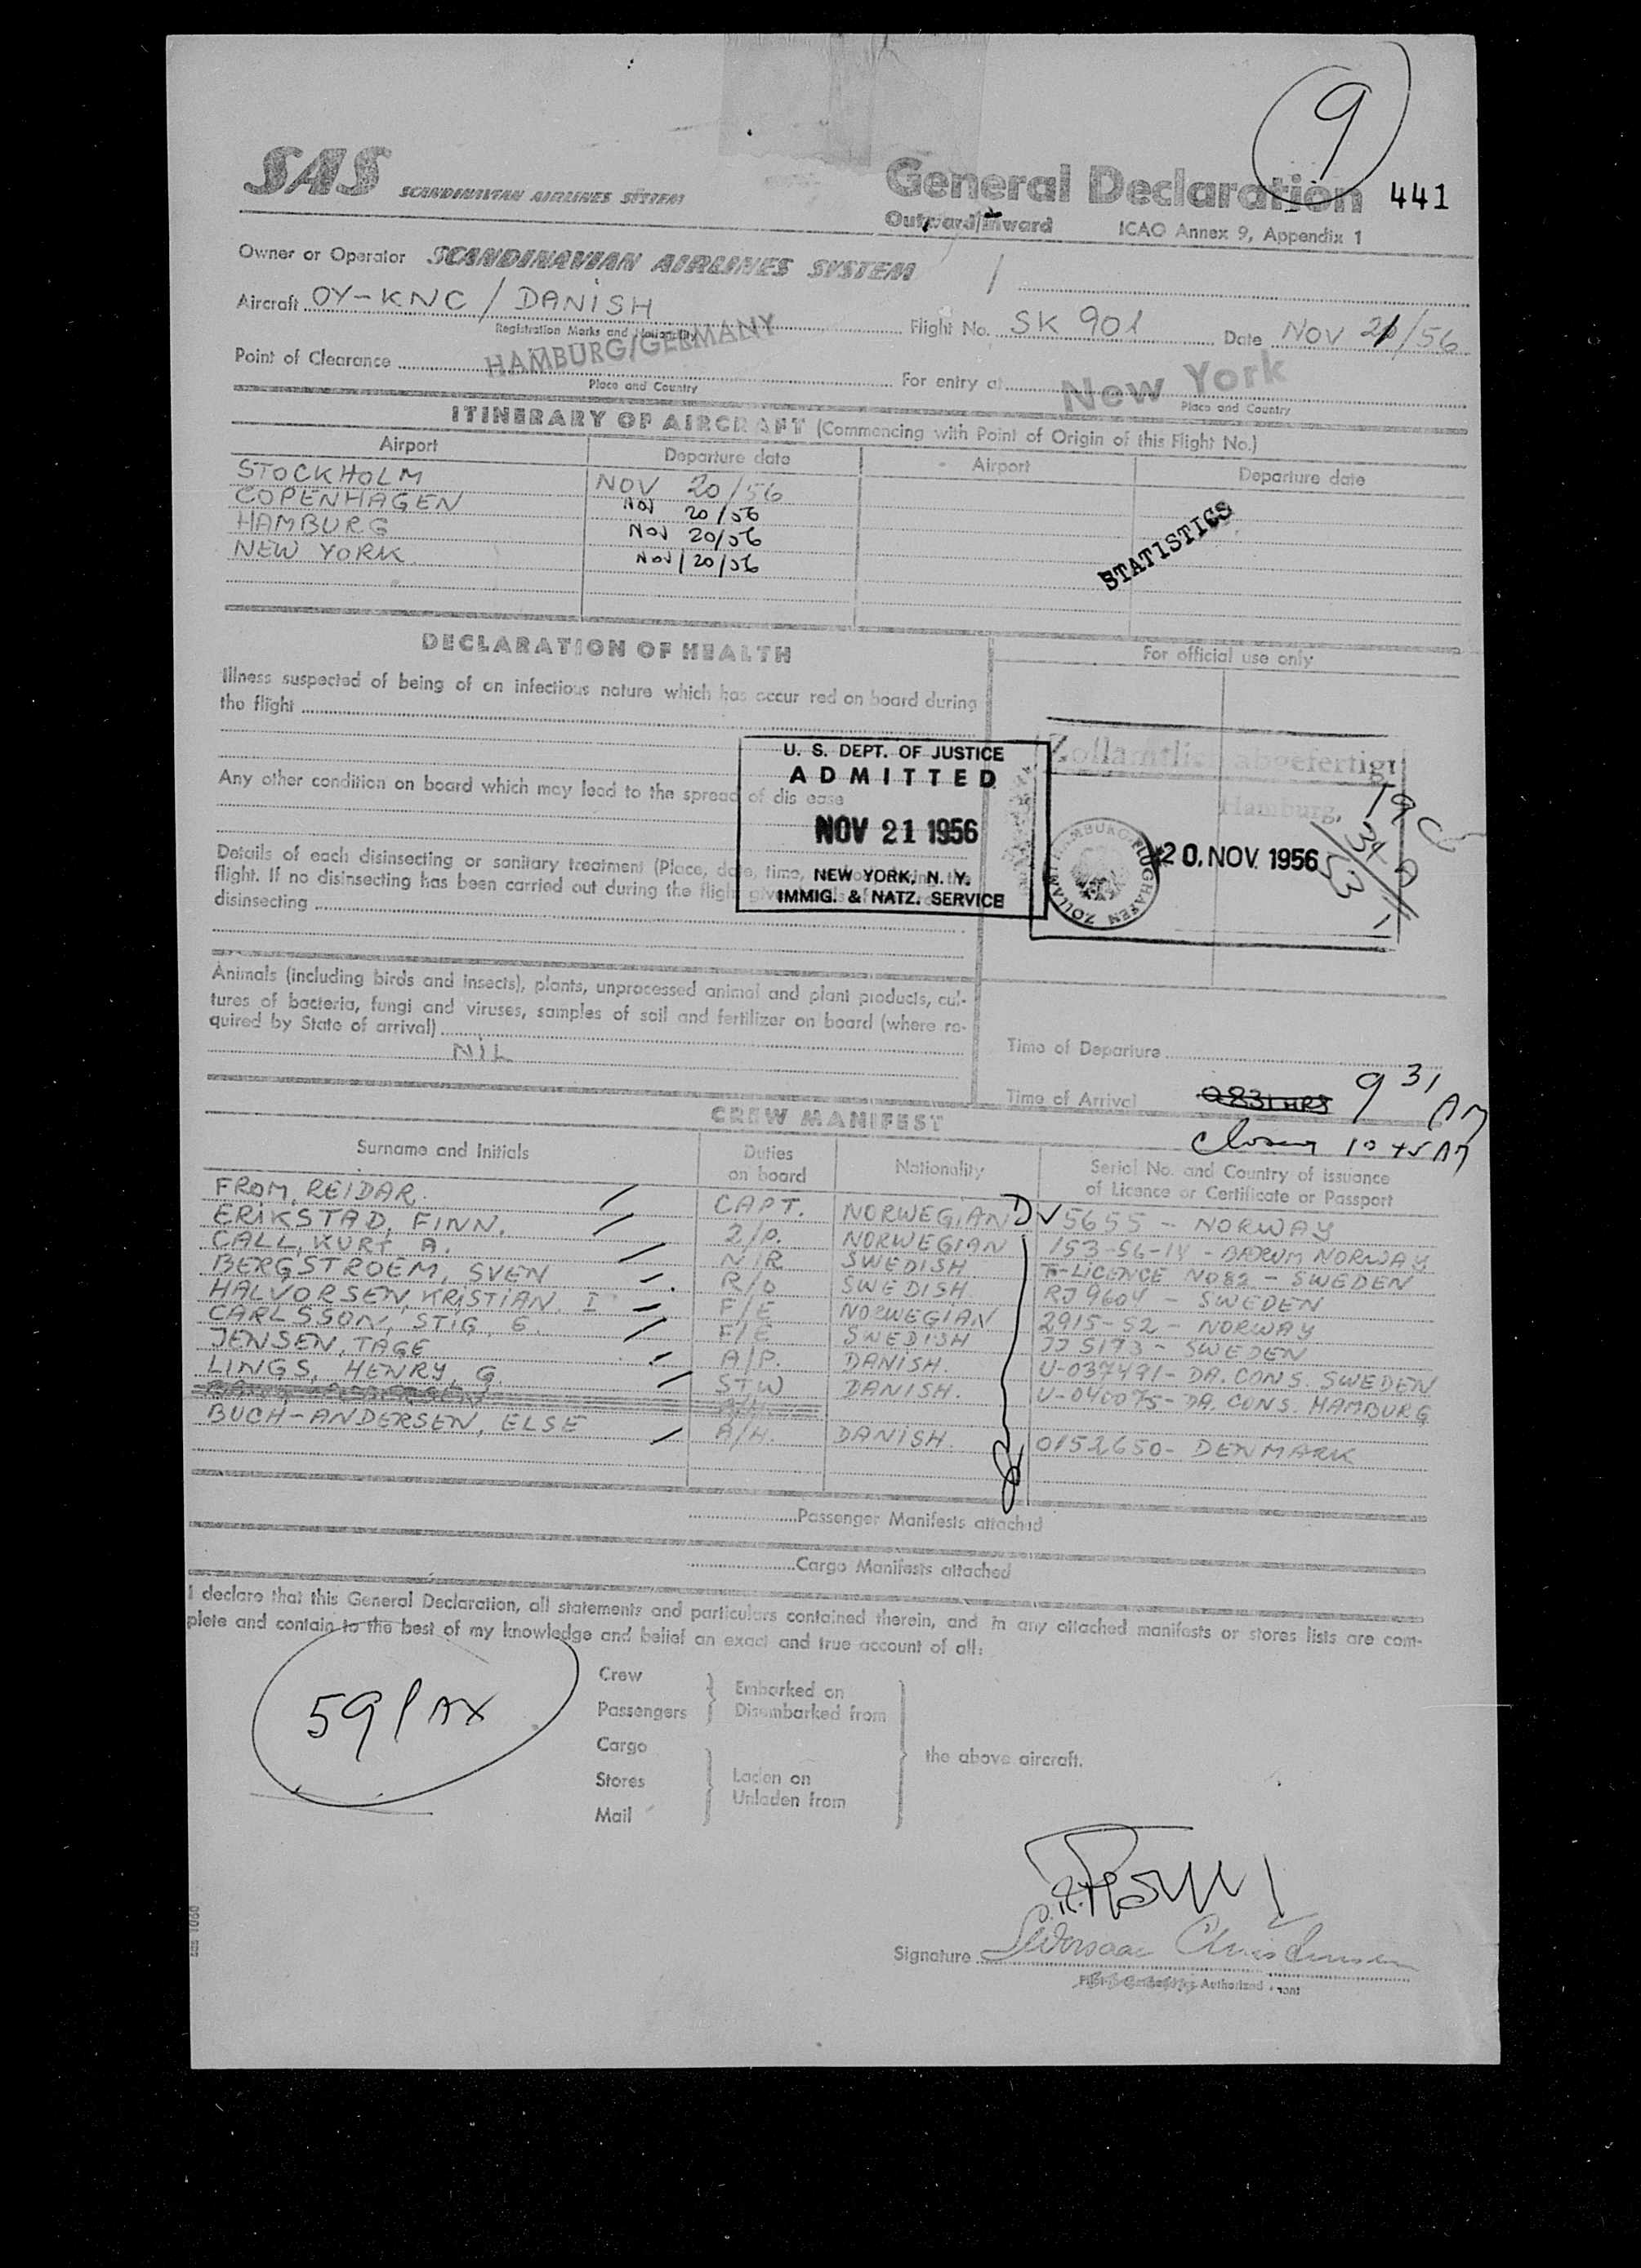 9
SAS SCANDINAVIAN AIRLINES SYSTEM
General Declaration 441
Outward/Inward ICAO Annex 9, Appendix 1
Owner or Operator SCANDINAVIAN AIRLINES SYSTEM
Aircraft OY-KNC / DANISH Flight No. SK 901 Date NOV 21/56
Registration Marks and Nationality
Point of Clearance HAMBURG/GERMANY For entry at New York
Place and Country Place and Country
ITINERARY OF AIRCRAFT (Commencing with Point of Origin of this Flight No.)
Airport Departure date Airport Departure date
STOCKHOLM NOV 20/56
COPENHAGEN NOV 20/56
HAMBURG NOV 20/56
NEW YORK NOV/20/56
STATISTICS
DECLARATION OF HEALTH
For official use only
Illness suspected of being of an infectious nature which has occur red on board during
the flight
Any other condition on board which may lead to the spread of dis ease
Details of each disinsecting or sanitary treatment (Place, date, time,
flight. If no disinsecting has been carried out during the flight give
disinsecting
U. S. DEPT. OF JUSTICE
ADMITTED
NOV 21 1956
NEW YORK, N. Y.
IMMIG. & NATZ. SERVICE
Zollamtlich abgefertigt
Hamburg,
20. NOV. 1956
HAMBURG FLUGHAFEN ZOLLAMT
Animals (including birds and insects), plants, unprocessed animal and plant products, cul-
tures of bacteria, fungi and viruses, samples of soil and fertilizer on board (where re-
quired by State of arrival)
NIL
Time of Departure
Time of Arrival 0831 HRS 9 31 AM
10 45 AM
CREW MANIFEST
Surname and Initials Duties on board Nationality Serial No. and Country of issuance of Licence or Certificate or Passport
FROM, REIDAR. CAPT. NORWEGIAN 5655 - NORWAY
ERIKSTAD, FINN. 2/P. NORWEGIAN 153-56-IV - BÆRUM NORWAY
CALL, KURT A. N/R SWEDISH T-LICENCE NO 82 - SWEDEN
BERGSTROEM, SVEN R/O SWEDISH RJ 9604 - SWEDEN
HALVORSEN, KRISTIAN. I F/E NORWEGIAN 2915-52 - NORWAY
CARLSSON, STIG, E. F/E SWEDISH JJ 5193 - SWEDEN
JENSEN, TAGE A/P. DANISH. U-037491- DA. CONS. SWEDEN
LINGS, HENRY, G. STW DANISH. U-040075- DA. CONS. HAMBURG
BUCH-ANDERSEN, ELSE A/H. DANISH. 0152650- DENMARK
Passenger Manifests attached
Cargo Manifests attached
I declare that this General Declaration, all statements and particulars contained therein, and in any attached manifests or stores lists are com-
plete and contain to the best of my knowledge and belief an exact and true account of all:
59 PAX
Crew
Passengers
Embarked on
Disembarked from
Cargo
Stores
Mail
Laden on
Unladen from
the above aircraft.
Signature
Authorized